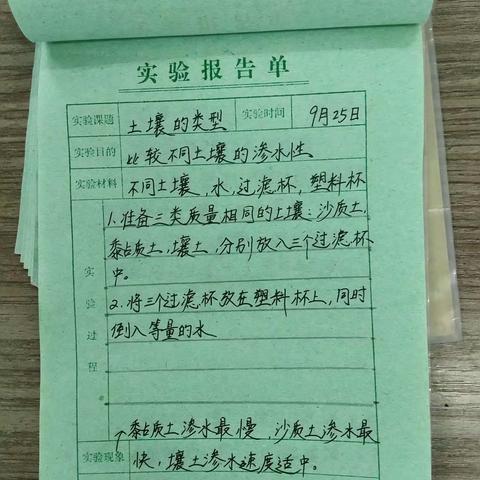 实验报告单
实验课题 土壤的类型 实验时间 9月25日
实验目的 比较不同土壤的渗水性
实验材料 不同土壤，水，过滤杯，塑料杯
实验过程
1.准备三类质量相同的土壤：沙质土、
黏质土、壤土，分别放入三个过滤杯
中。
2.将三个过滤杯放在塑料杯上，同时
倒入等量的水
黏质土渗水最慢，沙质土渗水最
实验现象 快，壤土渗水速度适中。